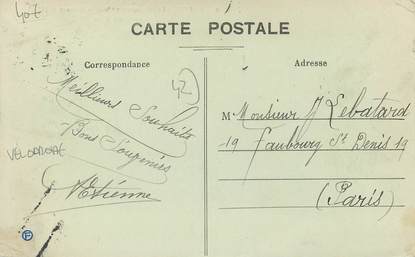 40€
CARTE POSTALE
Correspondance
Adresse
42
Meilleurs Souhaits
Bons Souvenirs
Etienne
VELODROME
M. Monsieur J Lebatard
19 Faubourg St Denis 19
(Paris)